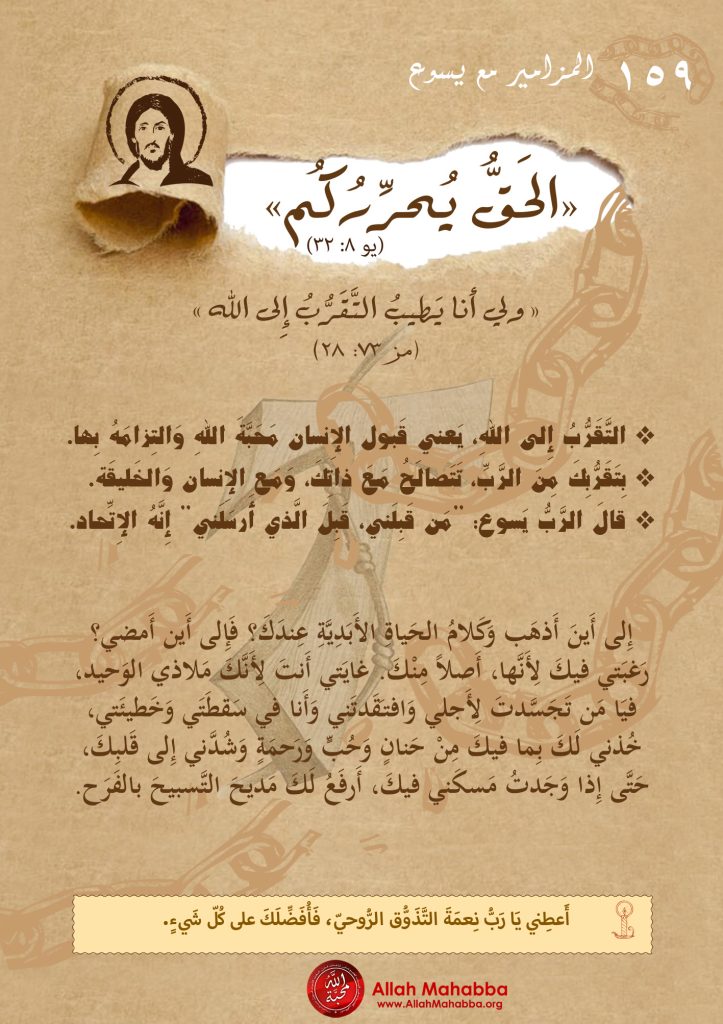 ١٥٩ المزامير مع يسوع
«الحَقُّ يُحرِّرُكُم»
(يو ٨: ٣٢)
« ولي أنا يَطيبُ التَّقَرُّبُ إِلى الله »
(مز ٧٣: ٢٨)
❖ التَّقَرُّبُ إِلى اللهِ، يَعني قَبول الإنسان مَحَبَّةَ اللهِ وَالتِزامَهُ بِها.
❖ بِتَقَرُّبِكَ مِنَ الرَّبِّ، تَتَصالَحُ مَعَ ذاتِكَ، وَمَع الإنسان وَالخَليقَة.
❖ قالَ الرَّبُّ يَسوع: "مَن قَبِلَني، قَبِلَ الَّذي أَرسَلَني" إِنَّهُ الإِتِّحاد.
إِلى أَينَ أَذهَب وَكَلامُ الحَياة الأَبَدِيَّةِ عِندَكَ؟ فَإِلى أَين أَمضي؟
رَغبَتي فيكَ لِأَنَّها، أَصلاً مِنْكَ. غايَتي أَنتَ لِأَنَّكَ مَلاذي الوَحيد،
فيَا مَن تَجَسَّدتَ لِأَجلي وَافتَقَدَتَني وَأَنا في سَقطَتَي وَخَطيئَتي،
خُذني لَكَ بِما فيكَ مِنْ حَنانٍ وَحُبٍّ وَرَحمَةٍ وَشُدَّني إِلى قَلبِكَ،
حَتَّى إِذا وَجَدتُ مَسكَني فيكَ، أَرفَعُ لَكَ مَديحَ التَّسبيحَ بالفَرَح.
أَعطِني يَا رَبُّ نِعمَةَ التَّذَوُّق الرُّوحيّ، فَأُفَضِّلَكَ على كُلّ شَيءٍ.
الله محبّة
Allah Mahabba
www.AllahMahabba.org